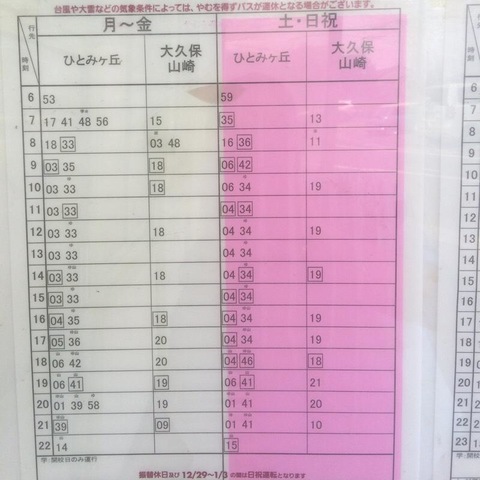 台風や大雪などの気象条件によっては、やむを得ずバスが運休となる場合がございます。
行先 月～金 土・日祝
時刻 ひとみヶ丘 大久保 山崎 ひとみヶ丘 大久保 山崎
6 53 59
7 17 41 48 56 15 35 13
8 18 33 03 48 16 36 11
9 03 35 18 06 42
10 03 33 18 06 34 19
11 03 33 04 34
12 03 33 18 04 34 19
13 03 33 04 34
14 03 33 18 04 34 19
15 03 33 04 34
16 04 35 18 04 34 19
17 05 36 20 04 34 19
18 06 42 20 04 46 18
19 06 41 19 06 41 21
20 01 39 58 19 01 41 20
21 39 09 01 41 10
22 14 15
学:開校日のみ運行
振替休日及び 12/29～1/3 の間は日祝運転となります
16
17
18
19
20
21
22
23